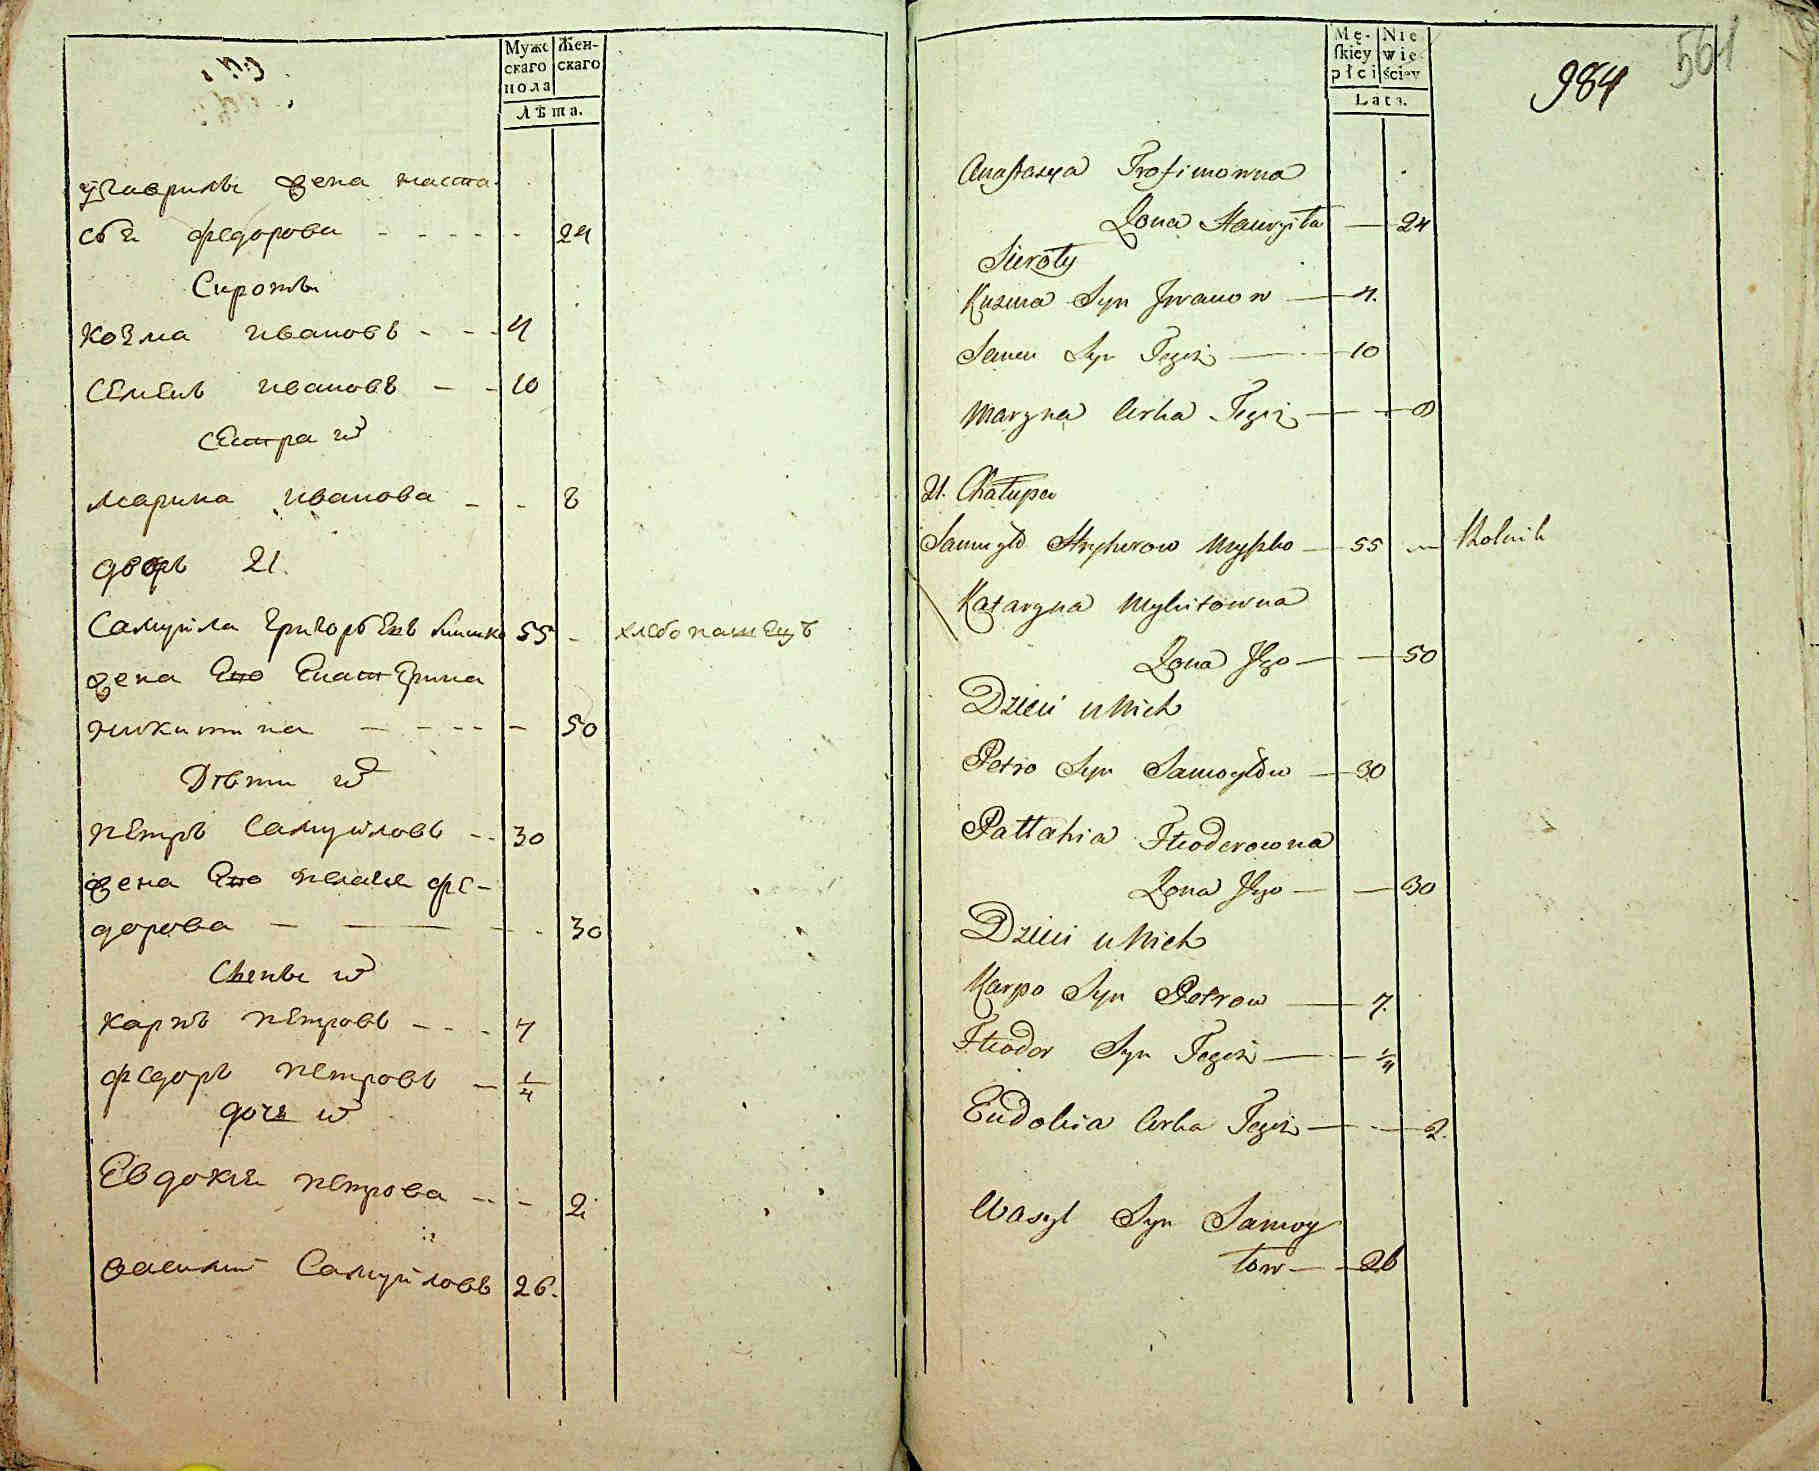 Мужескаго пола
Женскаго
Лѣта.
у гаврилы жена наста
сія федорова - - - - - 24
Сироты
козма ивановъ - - - 4
семенъ ивановъ - - 10
сестра их
марина иванова - - 8
дворъ 21.
Самуйла григорьевъ 55 - хлебопашецъ
жена его екатерина
никитина - - - - - 50
Дѣти их
петръ Самуйловъ - - 30
жена его пелагея фе-
дорова - - - - 30
Сыны их
карпъ петровъ - - - 7
федоръ петровъ - 1/4
дочь их
Евдокия петрова - - - 2
василий Самуйловъ 26.
Męskiey płci
Niewieściey
Lata.
984
561
Anastasya Trofimowna
Zona Hawryiła — 24
Sieroty
Kuzma Syn Jwanow — 4.
Semen Syn Tegoż — 10
Maryna Corka Tegoż — 8
21. Chałupa
Samuyło Hryhorow — 55 — Rolnik
Kataryna Mykitowna
Zona Jego — 50
Dzieci u Nich
Petro Syn Samoyłow — 30
Pałłahia Fteodorowna
Zona Jego — 30
Dzieci u Nich
Karpo Syn Petrow — 7.
Fteodor Syn Tegoż — 1/4
Eudokia Corka Tegoż — 2.
Wasyl Syn Samoy
łow — 26